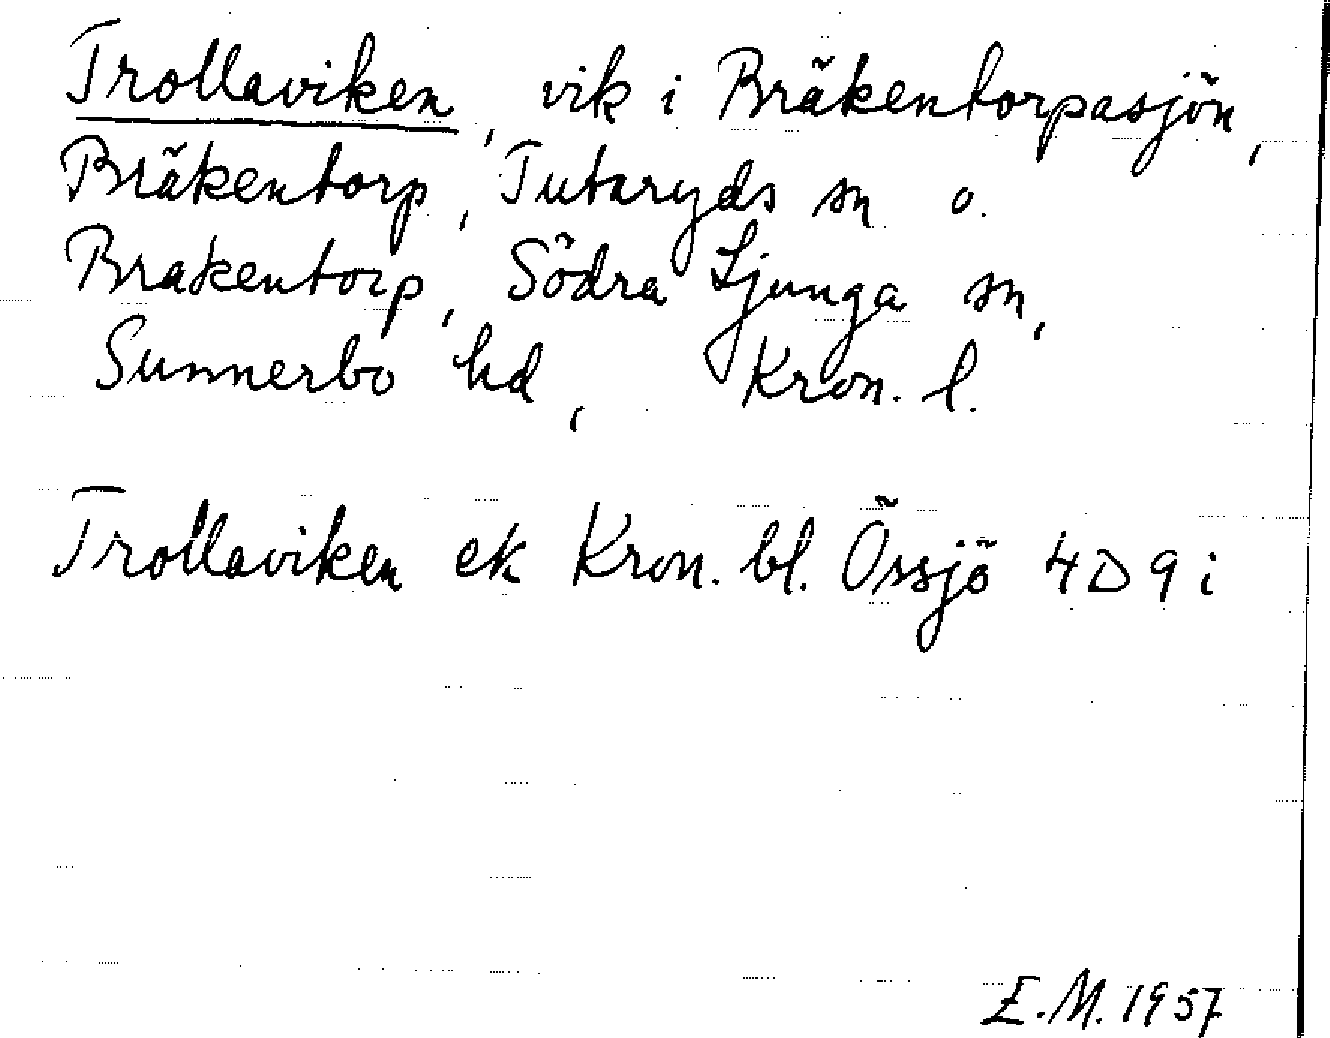 Trollaviken, vik i Bräkentorpasjön,
Bräkentorp, Tutaryds sn o.
Brakentorp, Södra Ljunga sn,
Sunnerbo hd, Kron. l.
Trollaviken ek Kron. bl. Össjö 4D9i
E.M. 1957